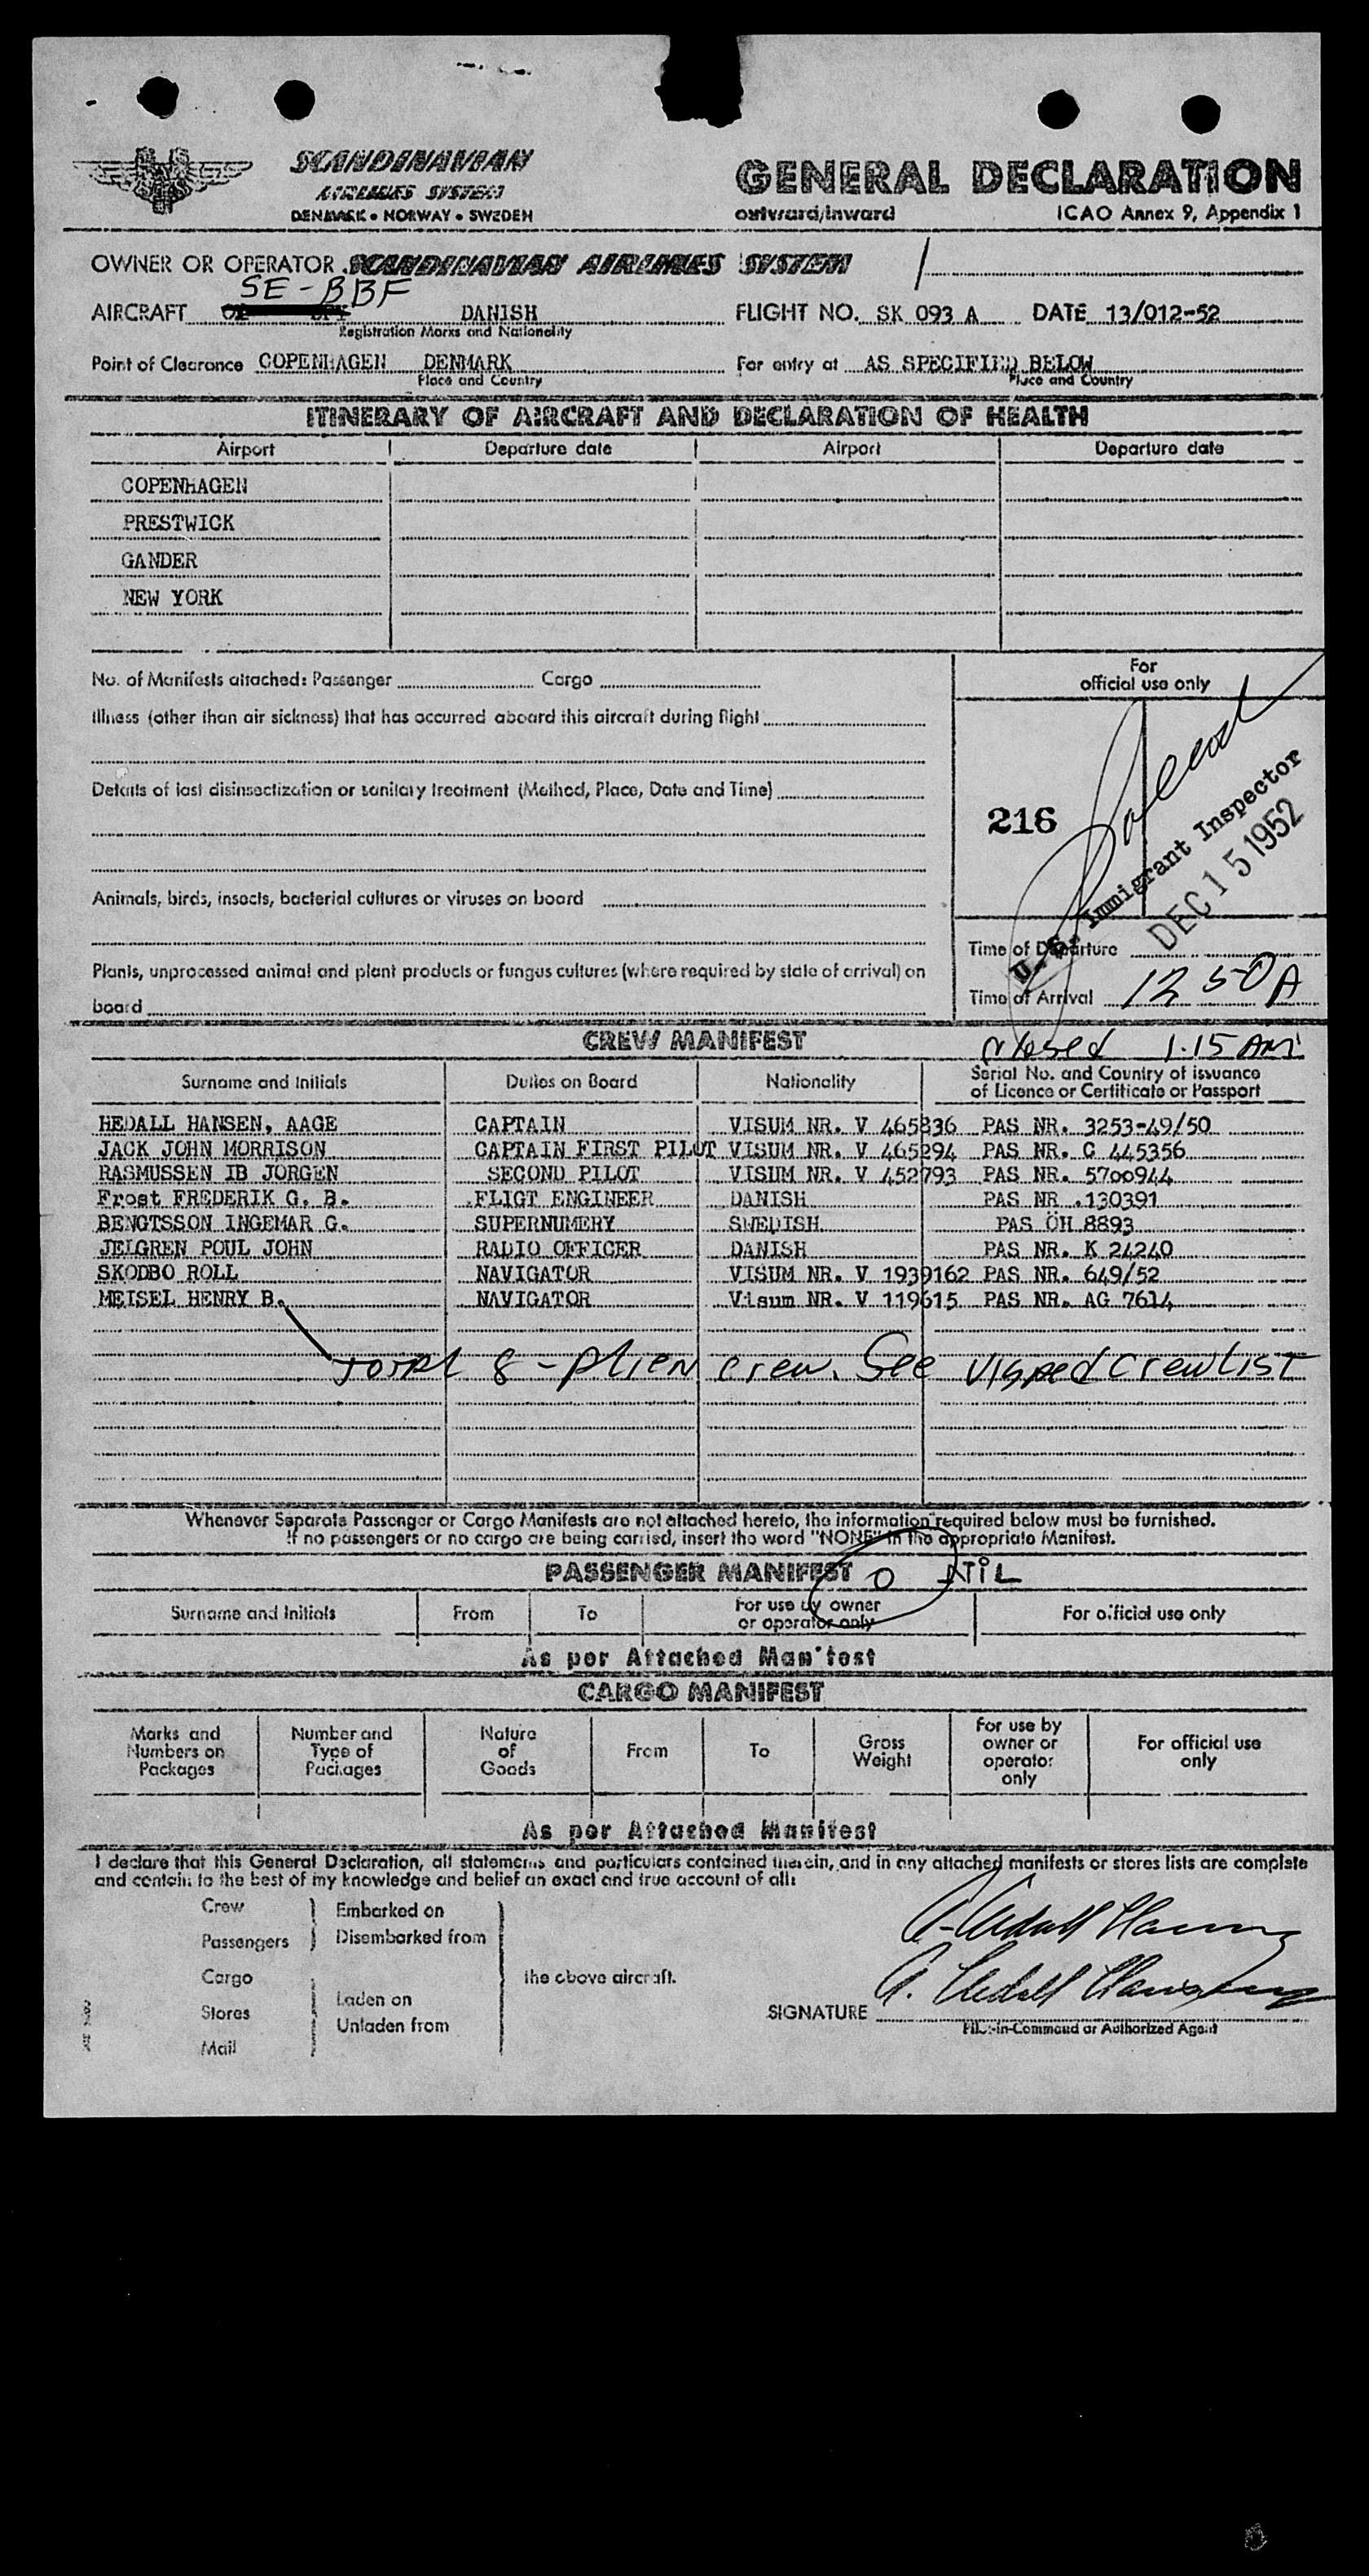 SCANDINAVIAN
AIRLINES SYSTEM
DENMARK • NORWAY • SWEDEN
GENERAL DECLARATION
outward/inward ICAO Annex 9, Appendix 1
OWNER OR OPERATOR SCANDINAVIAN AIRLINES SYSTEM 1
SE-BBF
AIRCRAFT DANISH FLIGHT NO. SK 093 A DATE 13/012-52
Registration Marks and Nationality
Point of Clearance COPENHAGEN DENMARK For entry at AS SPECIFIED BELOW
Place and Country Place and Country
ITINERARY OF AIRCRAFT AND DECLARATION OF HEALTH
Airport Departure date Airport Departure date
COPENHAGEN
PRESTWICK
GANDER
NEW YORK
No. of Manifests attached: Passenger Cargo
For
official use only
Illness (other than air sickness) that has occurred aboard this aircraft during flight
Details of last disinsectization or sanitary treatment (Method, Place, Date and Time)
216
U.S. Immigrant Inspector
DEC 15 1952
Animals, birds, insects, bacterial cultures or viruses on board
Time of Departure
Plants, unprocessed animal and plant products or fungus cultures (where required by state of arrival) on
board
Time of Arrival 12 50 A
CREW MANIFEST
1.15 AM
Surname and Initials Duties on Board Nationality Serial No. and Country of issuance
of Licence or Certificate or Passport
HEDALL HANSEN, AAGE CAPTAIN VISUM NR. V 465836 PAS NR. 3253-49/50
JACK JOHN MORRISON CAPTAIN FIRST PILOT VISUM NR. V 465294 PAS NR. C 445356
RASMUSSEN IB JORGEN SECOND PILOT VISUM NR. V 452793 PAS NR. 5700944
Frost FREDERIK G. B. FLIGT ENGINEER DANISH PAS NR .130391
BENGTSSON INGEMAR G. SUPERNUMERY SWEDISH PAS ÖH 8893
JELGREN POUL JOHN RADIO OFFICER DANISH PAS NR. K 24240
SKODBO ROLL NAVIGATOR VISUM NR. V 1939162 PAS NR. 649/52
MEISEL HENRY B. NAVIGATOR Visum NR. V 119615 PAS NR. AG 7614
Total 8-Alien crew. See visaed crew list
Whenever Separate Passenger or Cargo Manifests are not attached hereto, the information required below must be furnished.
If no passengers or no cargo are being carried, insert the word "NONE" in the appropriate Manifest.
PASSENGER MANIFEST 0 NIL
Surname and Initials From To For use by owner
or operator only For official use only
As per Attached Manifest
CARGO MANIFEST
Marks and
Numbers on
Packages
Number and
Type of
Packages
Nature
of
Goods
From
To
Gross
Weight
For use by
owner or
operator
only
For official use
only
As per Attached Manifest
I declare that this General Declaration, all statements and particulars contained therein, and in any attached manifests or stores lists are complete
and contain to the best of my knowledge and belief an exact and true account of all:
Crew
Passengers
Embarked on
Disembarked from
Cargo
Stores
Mail
Laden on
Unladen from
the above aircraft.
A. Hedall Hansen
A. Hedall Hansen
SIGNATURE
Pilot-in-Command or Authorized Agent